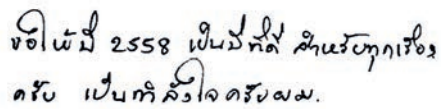 ขอให้ปี 2558 เป็นปีที่ดี สำหรับทุกเรื่อง
ครับ เป็นกำลังใจครับผม.